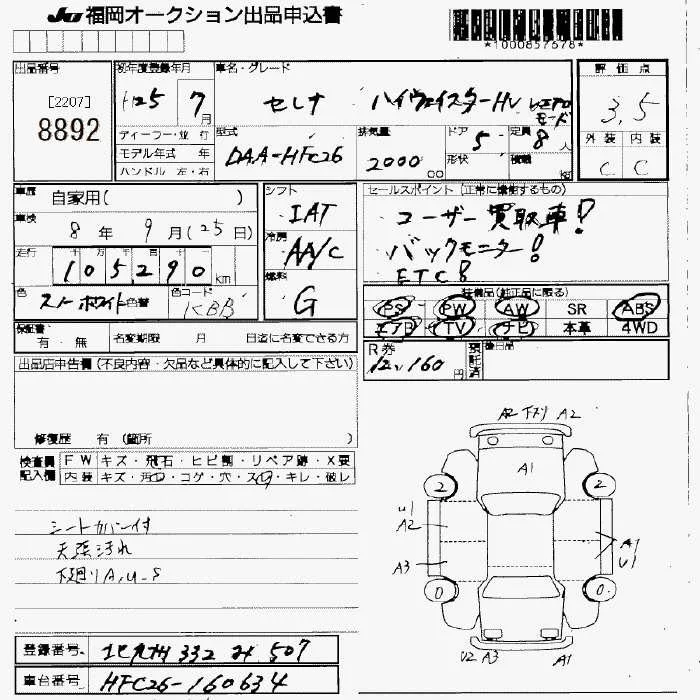 JU 福岡オークション出品申込書
*1000857578*
出品番号
[2207]
8892
初年度登録年月
H25 7月
車名・グレード
セレナ ハイウェイスターHV Vエアロモード
評価点
3,5
外装 内装
C C
ディーラー・並行
モデル年式 年
ハンドル 左・右
型式
DAA-HFC26
排気量
2000 cc
ドア
5
形状
定員
8人
積載
kg
車歴 自家用( )
車検 8年 9月(25日)
走行 105290 km
色 スノーホワイト 色替
色コード
KBB
シフト
IAT
冷房
AA/C
燃料
G
セールスポイント(正常に機能するもの)
ユーザー買取車!
バックモニター!
ETC!
装備品(純正品に限る)
PS PW AW SR ABS
エアB TV ナビ 本革 4WD
保証書 有・無 名変期限 月 日迄に名変できる方
R券
12,160円
預託済
後日品
出品店申告欄(不良内容・欠品など具体的に記入して下さい)
修復歴 有(箇所 )
検査員記入欄
FW キズ・飛石・ヒビ割・リペア跡・X要
内装 キズ・汚レ・コゲ・穴・スレ・キレ・破レ
シートカバー付
天張汚れ
下廻りA,U,S
A2 下スリ A2
A1
2 2
U1
A2
A3
A1
U1
0 0
U2 A3 A1
登録番号 北九州 332 み 507
車台番号 HFC26-160634